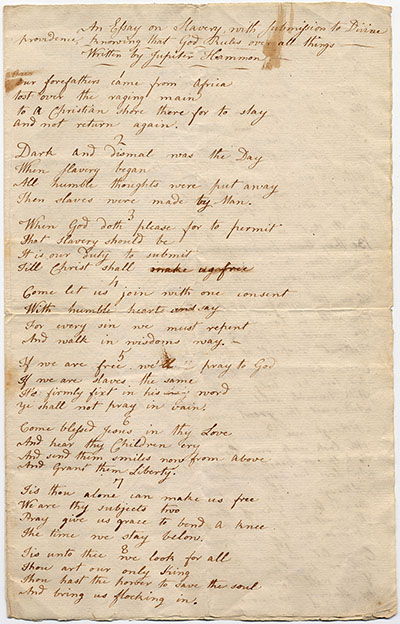 An Essay on Slavery, with submission to Divine
providence, knowing that God Rules over all things —
Written by Jupiter Hammon
1
Our forefathers came from Africa
tost over the raging main
to a Christian shore there for to stay
and not return again.
2
Dark and dismal was the Day
When slavery began
All humble thoughts were put away
Then slaves were made by Man.
3
When God doth please for to permit
That Slavery should be
It is our duty to submit
Till Christ shall make us free
4
Come let us join with one consent
With humble hearts and say
For every sin we must repent
And walk in wisdoms way. —
5
If we are free, we'll pray to God
If we are slaves, the same
It's firmly fixt in his word
Ye shall not pray in vain.
6
Come blessed Jesus in thy Love
And hear thy Children cry
And send them smiles now from above
And Grant them Liberty.
7
Tis thou alone can make us free
We are thy subjects two
Pray give us grace to bend a knee
The time we stay below.
8
Tis unto thee we look for all
Thou art our only King
Thou hast the power to save the soul
And bring us flocking in.